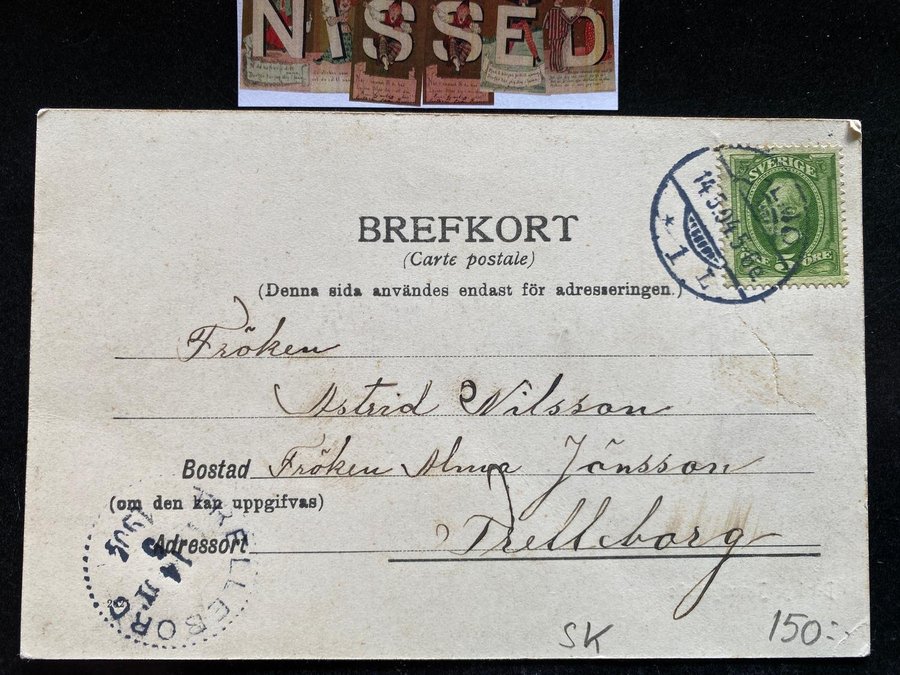 NISSED
BREFKORT
(Carte postale)
(Denna sida användes endast för adresseringen.)
SVERIGE
ÖRE
14.5.04
1
Fröken
Astrid Nilsson
Bostad Fröken Alma Jönsson
(om den kan uppgifvas)
Adressort Trelleborg
TRELLEBORG
14
5
1904
SK
150:-